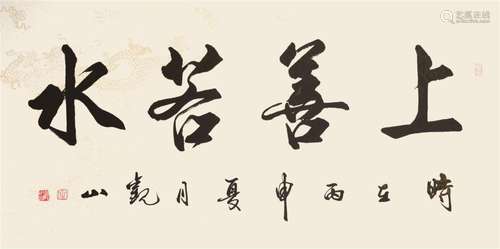 上善若水
時在丙申夏月觀山